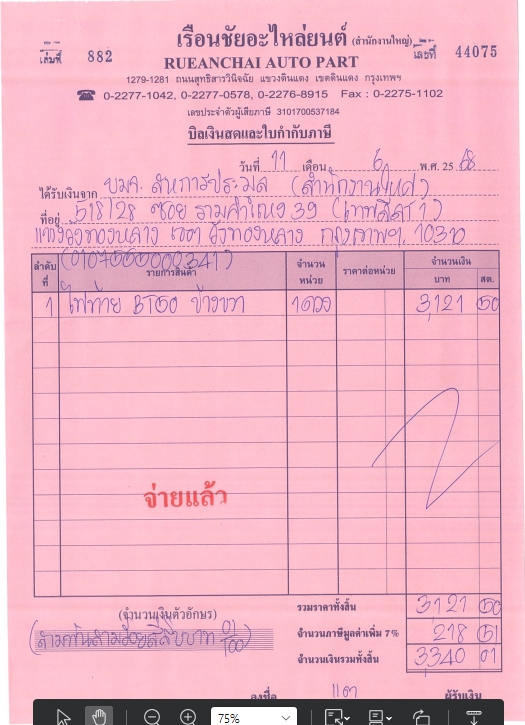 เรือนชัยอะไหล่ยนต์ (สำนักงานใหญ่)
เล่มที่ 882 เลขที่ 44075
RUEANCHAI AUTO PART
1279-1281 ถนนสุทธิสารวินิจฉัย แขวงดินแดง เขตดินแดง กรุงเทพฯ
☎ 0-2277-1042, 0-2277-0578, 0-2276-8915 Fax : 0-2275-1102
เลขประจำตัวผู้เสียภาษี 3101700537184
บิลเงินสดและใบกำกับภาษี
วันที่ 11 เดือน 6 พ.ศ. 25 68
ได้รับเงินจาก บมจ. สหการประมูล (สำนักงานใหญ่)
ที่อยู่ 518/28 ซอย รามคำแหง 39 (เทพลีลา 1)
แขวงวังทองหลาง เขต วังทองหลาง กรุงเทพฯ. 10310
ลำดับที่ รายการสินค้า จำนวนหน่วย ราคาต่อหน่วย จำนวนเงิน
บาท สต.
1 ไฟท้าย ข้างขวา 1 ดวง 3,121 50
จ่ายแล้ว
(จำนวนเงินตัวอักษร)
(สามพันสามร้อยสี่สิบบาท 01/100)
รวมราคาทั้งสิ้น 3,121 50
จำนวนภาษีมูลค่าเพิ่ม 7% 218 51
จำนวนเงินรวมทั้งสิ้น 3,340 01
ลงชื่อ ผู้รับเงิน
75%